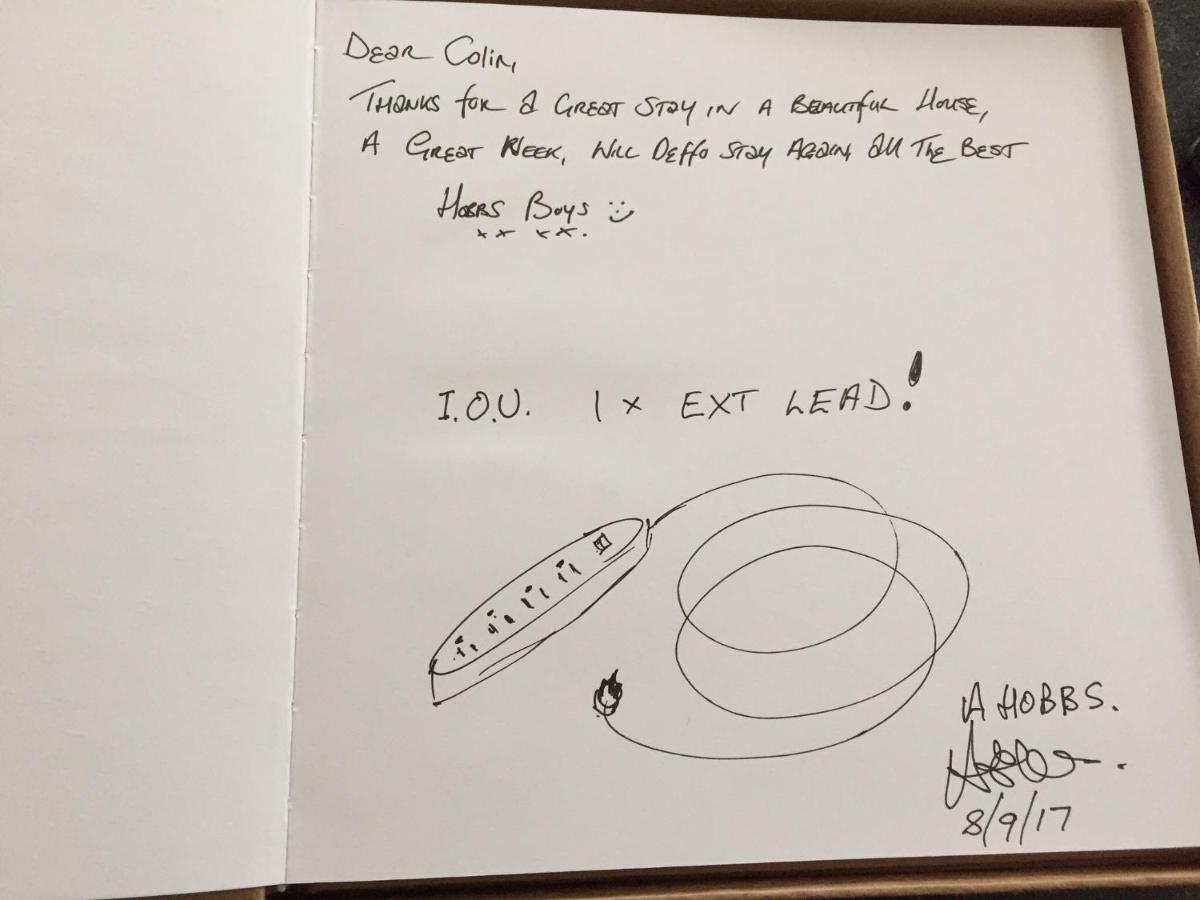 Dear Colin,
Thanks for a Great Stay in a Beautiful House,
A Great Week, Will Deffo Stay Again, All The Best
Hobbs Boys :)
x x x x.
I.O.U. 1 x EXT LEAD!
A HOBBS.
8/9/17